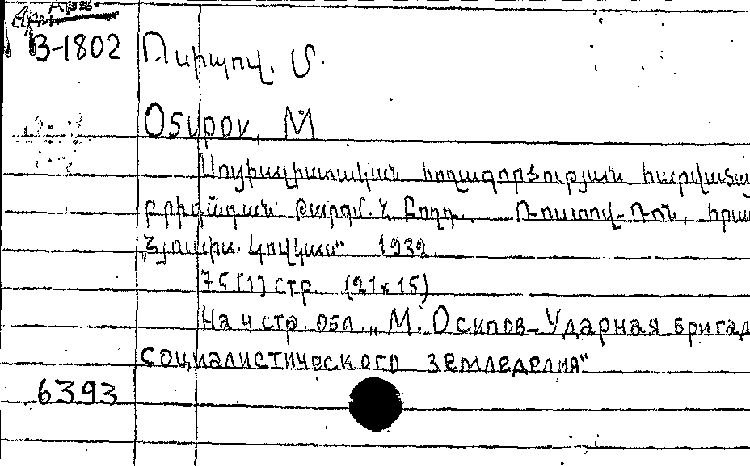 В-1802 Օսիպով. Մ.
Osipov, M
Սոցիալիստական հողագործության հարվածա
բրիգադան Թարգմ. Հ. Ռոստով-Դոն,
Հյուսիս. Կովկաս" 1932
75 [1] стр. (21x15)
На 4 стр. обл. „М. Осипов-Ударная бригад
социалистического земледелия"
6393